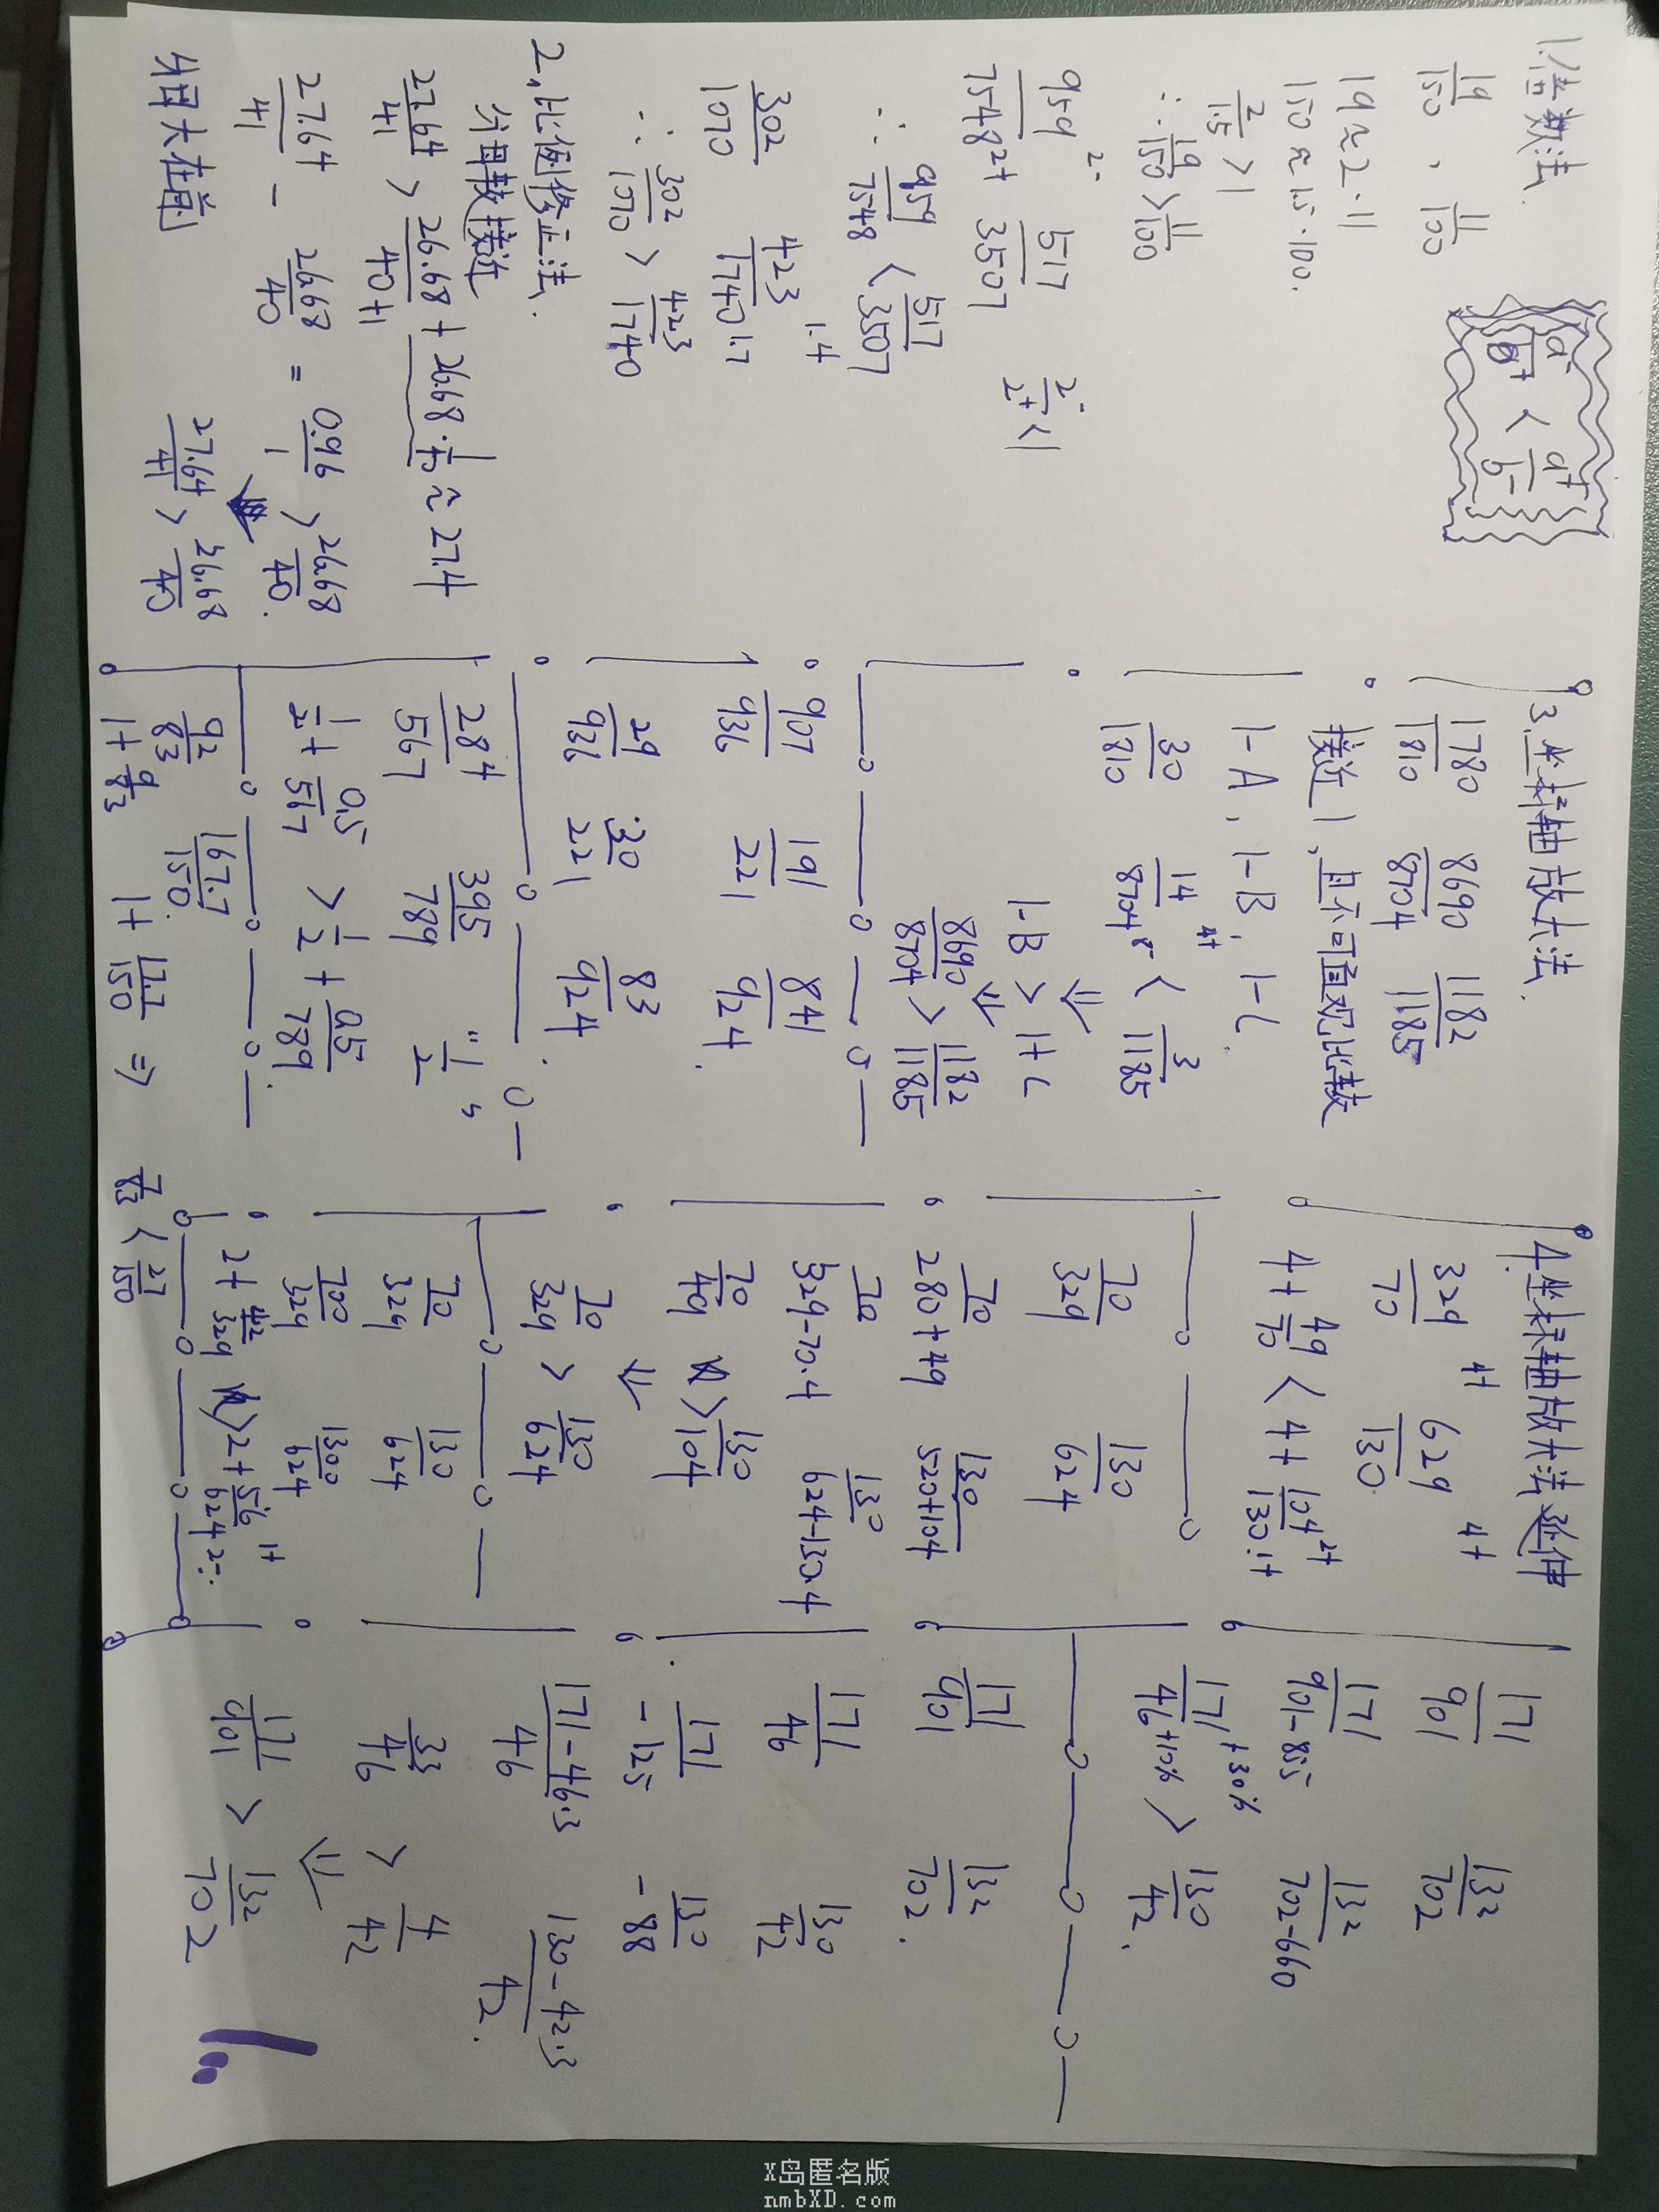 1.倍数法.
19/150 , 11/100
19≈2·11
150≈1.5·100.
2/1.5 >1
∴ 19/150 > 11/100
a-/b+ < a+/b-
959/7548 2- 2+ 517/3507 2-/2+ <1
∴ 959/7548 < 517/3507
302/1070 423/1740 1.4 1.7
∴ 302/1070 > 423/1740
2,比例修正法.
分母数接近
27.64/41 > 26.68+26.68·1/40/40+1 ≈27.4
27.64/41 - 26.68/40 = 0.96/1 > 26.68/40.
⇓
分母大在前 27.64/41 > 26.68/40
3.坐标轴放大法.
1780/1810 8690/8704 1182/1185
接近1,且不可直观比较
1-A, 1-B, 1-C
30/1810 14/8704 4+ 8- < 3/1185
⇓
1-B > 1-C
⇓
8690/8704 > 1182/1185
907/936 191/221 841/924.
29/936 30/221 83/924
284/567 395/789 "1/2"
1/2+0.5/567 > 1/2+0.5/789.
92/83 167.7/150.
1+9/83 1+17.7/150 ⇒ 9/83 < 17.7/150
4.坐标轴放大法延伸
329/70 4+ 629/130. 4+
4+49/70 < 4+104/130 2+ 1+
70/329 130/624
70/280+49 130/520+104
70/329-70.4 130/624-130.4
70/49 > 130/104
⇓
70/329 > 130/624
70/329 130/624
700/329 1300/624
2+42/329 > 2+56/624 1+ 2-
171/901 132/702
171/901-855 132/702-660
171/46 +30% +10% > 130/42.
171/901 132/702.
171/46 130/42
171/-125 130/-88
171-46.3/46 130-42.3/42.
33/46 > 4/42
⇓
171/901 > 132/702
X岛匿名版
nmbXD.com